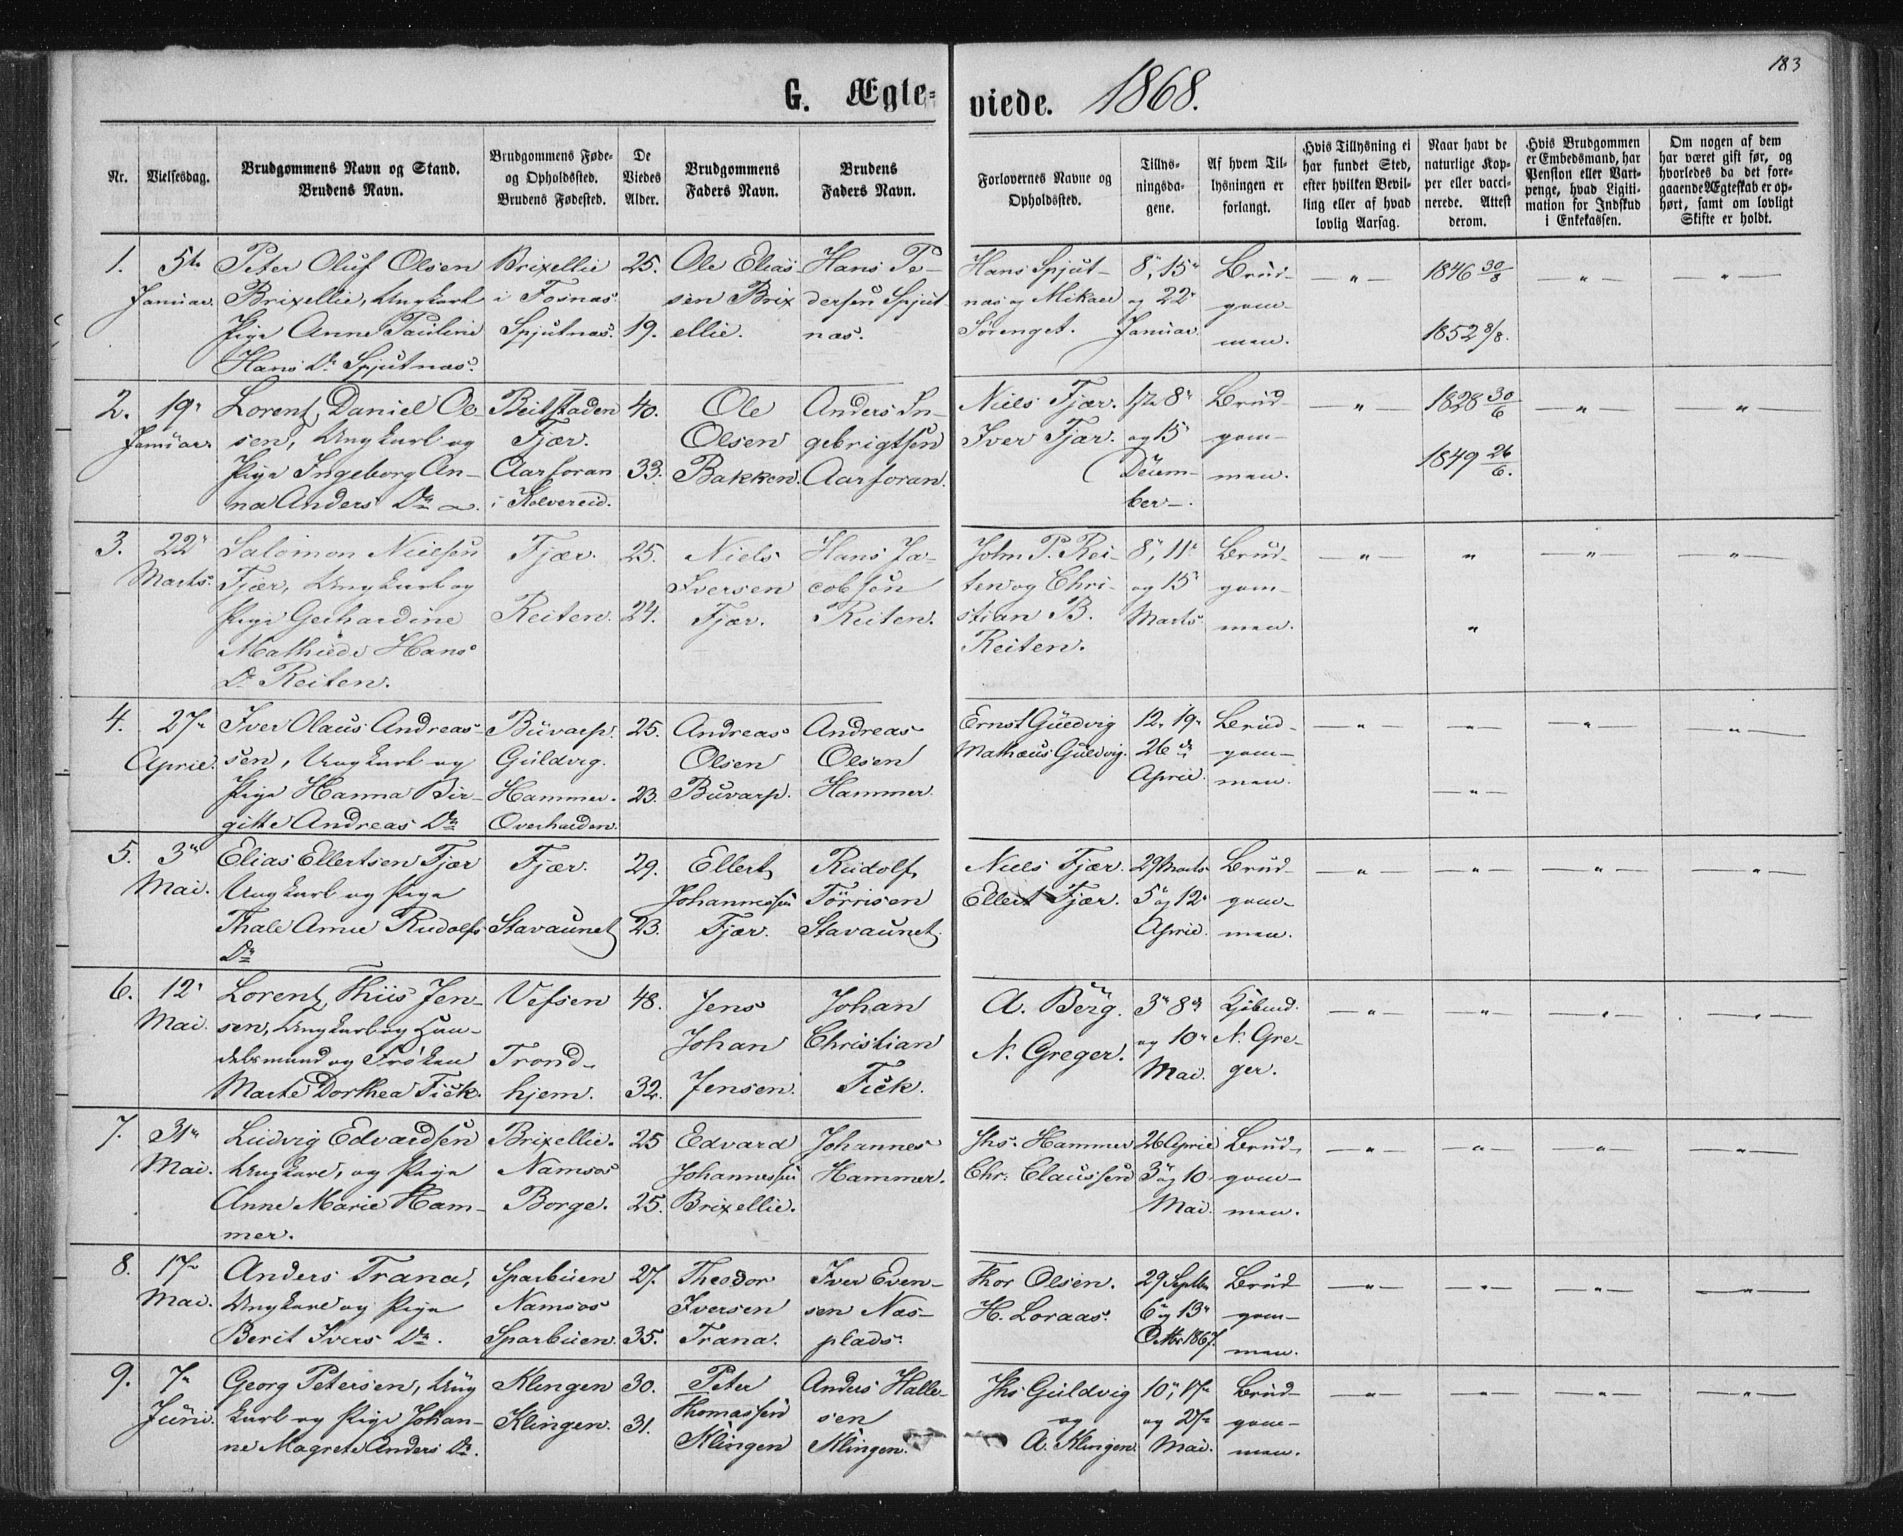 183
G. Ægte-
viede. 1868.
Nr.
Vielsesdag.
Brudgommens Navn og Stand.
Brudens Navn.
Brudgommens Føde-
og Opholdssted.
Brudens Fødested.
De
Viedes
Alder.
Brudgommens
Faders Navn.
Brudens
Faders Navn.
Forlovernes Navne og
Opholdssted.
Tillys-
ningsda-
gene.
Af hvem Til-
lysningen er
forlangt.
Hvis Tillysning ei
har fundet Sted,
efter hvilken Bevil-
ling eller af hvad
lovlig Aarsag.
Naar havt de
naturlige Kop-
per eller vacci-
nerede. Attest
derom.
Hvis Brudgommen
er Embedsmand, har
Pension eller Vart-
penge, hvad Ligiti-
mation for Indskud
i Enkekassen.
Om nogen af dem
har været gift før, og
hvorledes da det fore-
gaaende Ægteskab er op-
hørt, samt om lovligt
Skifte er holdt.
1.
5te
Januar.
Peter Oluf Olsen
Brixellie, Ungkarl
Pige Anne Pauline
Hans Dr Spjutnæs.
Brixellie
i Fosnæs
Spjutnæs.
25.
19.
Ole Elias-
sen Brix
ellie.
Hans Pe-
dersen Spjut
næs.
Hans Spjut-
næs og Mikael
Sørenget.
8", 15"
og 22"
Januar.
Brud-
gom-
men.
— " —
1846 30/8
1852 8/8.
— " —
— " —
2.
19"
Januar.
Lorents Daniel Ol-
sen, Ungkarl og
Pige Ingeborg An-
na Anders Dr
Beitstaden
Fjær.
Aarforan
i Kolvereid.
40.
33.
Ole
Olsen
Bakken.
Anders In-
gebrigtsen
Aarforan.
Niels Fjær.
Iver Fjær.
1ste 8"
og 15"
Decem-
ber.
Brud-
gom-
men.
— " —
1828 30/6
1849 26/6.
— " —
— " —
3.
22"
Marts.
Salomon Nielsen
Fjær, Ungkarl og
Pige Gerhardine
Mathilde Hans
Dr Reiten.
Fjær.
Reiten.
25.
24.
Niels
Iversen
Fjær.
Hans Ja-
cobsen
Reiten.
John P. Rei-
ten og Chri-
stian B.
Reiten.
8", 11"
og 15"
Marts
Brud-
gom-
men.
— " —
"
"
— " —
— " —
4.
27"
April.
Iver Olaus Andreas-
sen, Ungkarl og
Pige Hanna Bir-
gitte Andreas Dr
Buvarp.
Guldvig.
Hammer.
Overhalden.
25.
23.
Andreas
Olsen
Buvarp.
Andreas
Olsen
Hammer.
Ernst Guldvig
Mathæus Guldvig.
12" 19"
26de
April.
Brud-
gom-
men.
— " —
— " —
— " —
— " —
— " —
5.
3die
Mai.
Elias Ellertsen Fjær
Ungkarl og Pige
Thale Amie Rudolfs
Dr
Fjær.
Stavaunet
29.
23.
Ellert
Johannessen
Fjær.
Rudolf
Tørrisen
Stavaunet.
Niels Fjær.
Ellert Fjær.
29 Marts
5" og 12"
April.
Brud-
gom-
men.
— " —
— " —
— " —
— " —
6.
12"
Mai.
Lorents Thiis Jen-
sen, Ungkarl og Han-
delsmand og Frøken
Marte Dorthea Fick.
Vefsen
Trond-
hjem.
48.
32.
Jens
Johan
Jensen.
Johan
Christian
Fick.
A. Berg.
N. Greger.
3" 8de
og 10"
Mai.
Kjøbmd.
N. Gre-
ger.
— " —
— " —
— " —
— " —
7.
31"
Mai.
Ludvig Edvardsen
Ungkarl, og Pige
Anne Marie Ham-
mer.
Brixellie.
Namsos
Borge.
25
25.
Edvard
Johannessen
Brixellie.
Johannes
Hammer.
Jhs. Hammer
Chr: Claussen
26 April
3" og 10"
Mai.
Brud-
gom-
men.
— " —
— " —
— " —
— " —
8.
17"
Mai.
Anders Trana,
Ungkarl og Pige
Berit Ivers Dr.
Sparbuen
Namsos
Sparbuen.
27.
35.
Theodor
Iversen
Trana.
Iver Even-
sen Næs-
plads.
Thor Olsen.
H. Loraas.
29 Septbr
6" og 13"
Octbr 1867.
Brud-
gom-
men.
— " —
— " —
— " —
— " —
9.
7"
Juni.
Georg Petersen, Ung
karl og Pige Johan-
ne Magrete Anders Dr.
Klingen
Klingen.
30.
31.
Peter
Thomassen
Klingen
Anders Halle-
sen
Klingen.
Jhs Guldvig
og
A. Klingen.
10", 17"
og 27"
Mai.
Brud-
gom-
men.
— " —
— " —
— " —
— " —